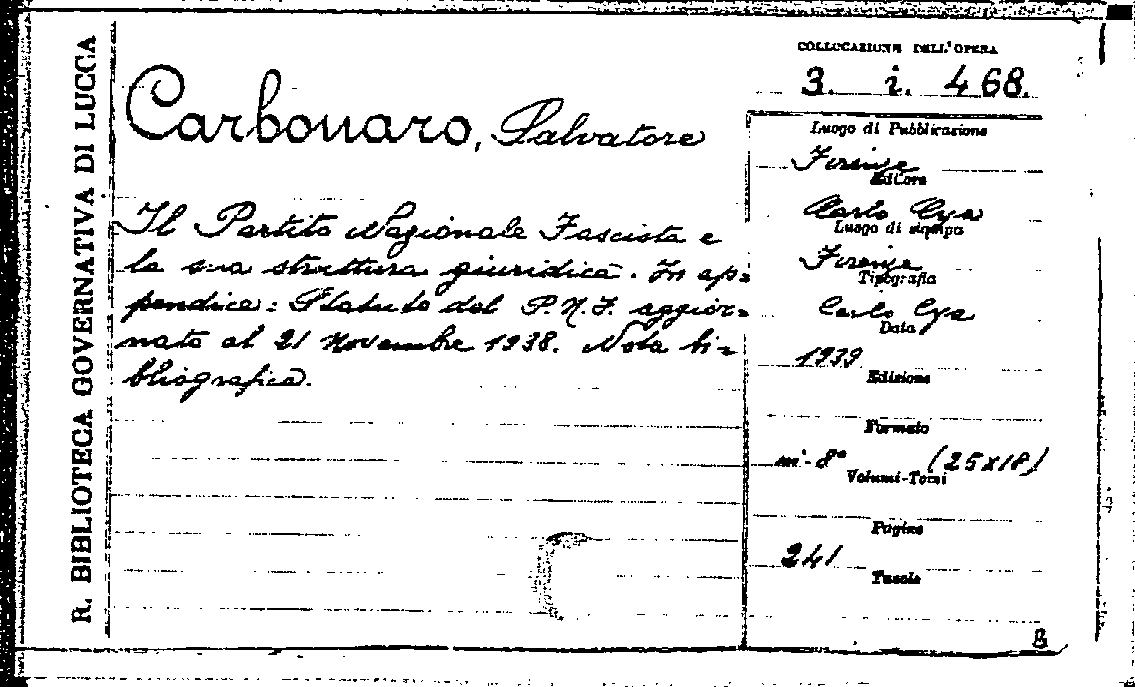 R. BIBLIOTECA GOVERNATIVA DI LUCCA
Carbonaro, Salvatore
Il Partito Nazionale Fascista e
la sua struttura giuridica. In ap=
pendice: Statuto del P.N.F. aggior=
nato al 21 Novembre 1938. Nota bi=
bliografica.
COLLOCAZIONE DELL'OPERA
3. i. 468.
Luogo di Pubblicazione
Firenze
Editore
Carlo Cya
Luogo di stampa
Firenze
Tipografia
Carlo Cya
Data
1939
Edizione
Formato
in-8° (25x18)
Volumi-Tomi
Pagine
241
Tavole